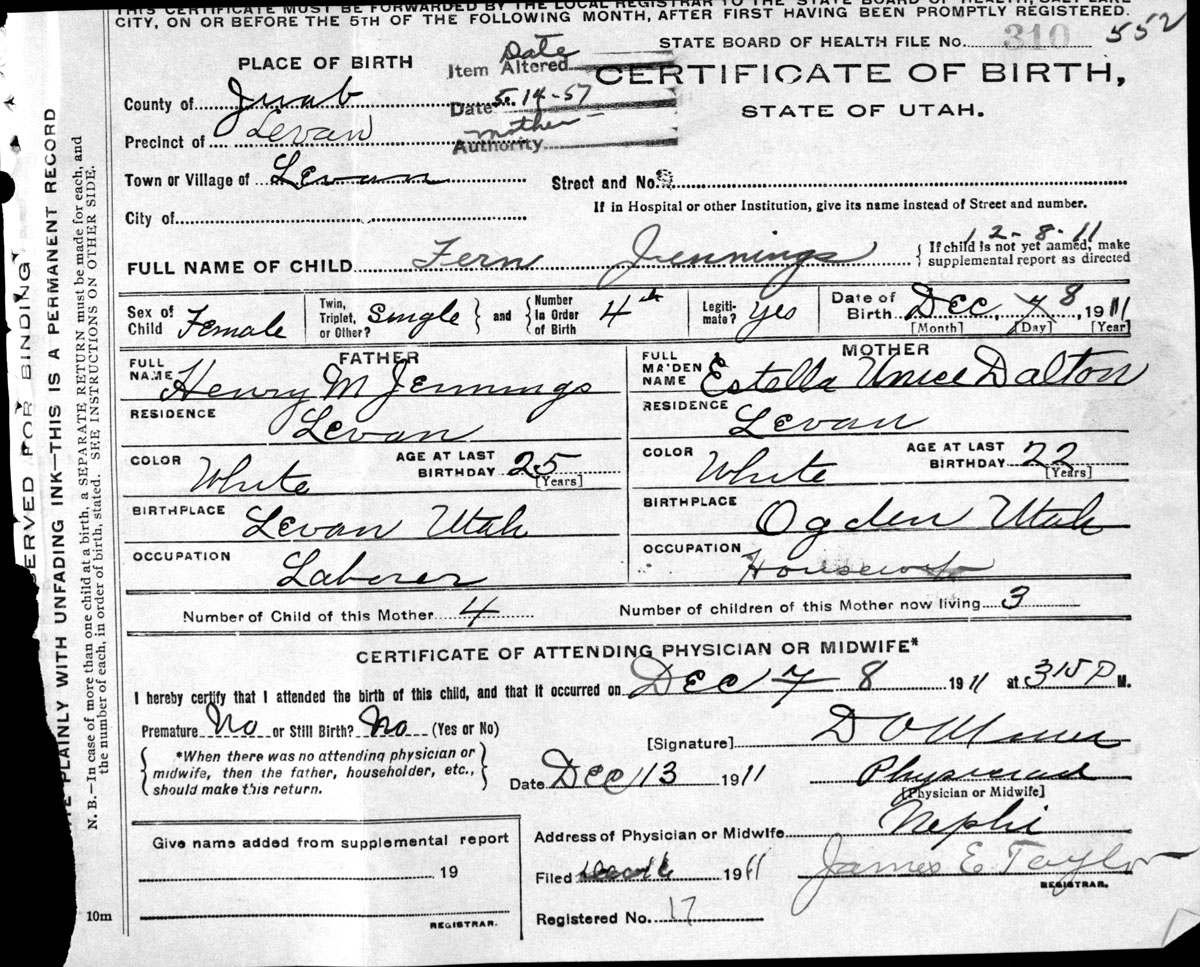 THIS CERTIFICATE MUST BE FORWARDED BY THE LOCAL REGISTRAR TO THE STATE BOARD OF HEALTH, SALT LAKE
CITY, ON OR BEFORE THE 5TH OF THE FOLLOWING MONTH, AFTER FIRST HAVING BEEN PROMPTLY REGISTERED.
STATE BOARD OF HEALTH FILE No. 310 552
PLACE OF BIRTH
Item Altered Date
Date 5-14-57
Authority Mother
CERTIFICATE OF BIRTH,
STATE OF UTAH.
County of Juab
Precinct of Levan
Town or Village of Levan
Street and No.
City of
If in Hospital or other Institution, give its name instead of Street and number.
12-8-11
FULL NAME OF CHILD Fern Jennings
If child is not yet named, make
supplemental report as directed
Sex of Child Female
Twin, Triplet, or Other? Single and Number In Order of Birth 4th
Legitimate? yes
Date of Birth Dec, 7 8, 1911
[Month] [Day] [Year]
FATHER
FULL NAME Henry M Jennings
RESIDENCE Levan
COLOR White AGE AT LAST BIRTHDAY 25 [Years]
BIRTHPLACE Levan Utah
OCCUPATION Laborer
MOTHER
FULL MAIDEN NAME Estella Unice Dalton
RESIDENCE Levan
COLOR White AGE AT LAST BIRTHDAY 22 [Years]
BIRTHPLACE Ogden Utah
OCCUPATION Housewife
Number of Child of this Mother 4 Number of children of this Mother now living 3
CERTIFICATE OF ATTENDING PHYSICIAN OR MIDWIFE*
I hereby certify that I attended the birth of this child, and that it occurred on Dec 7 8 1911 at 315 P M.
Premature No or Still Birth? No (Yes or No)
*When there was no attending physician or
midwife, then the father, householder, etc.,
should make this return.
[Signature] D O
Date Dec 13 1911 Physician
[Physician or Midwife]
Address of Physician or Midwife Nephi
Filed 1911 James E Taylor
REGISTRAR.
Registered No. 17
Give name added from supplemental report
19
REGISTRAR.
10m
SERVED FOR BINDING
PLAINLY WITH UNFADING INK—THIS IS A PERMANENT RECORD
N. B.—In case of more than one child at a birth, a SEPARATE RETURN must be made for each, and
the number of each, in order of birth, stated. SEE INSTRUCTIONS ON OTHER SIDE.